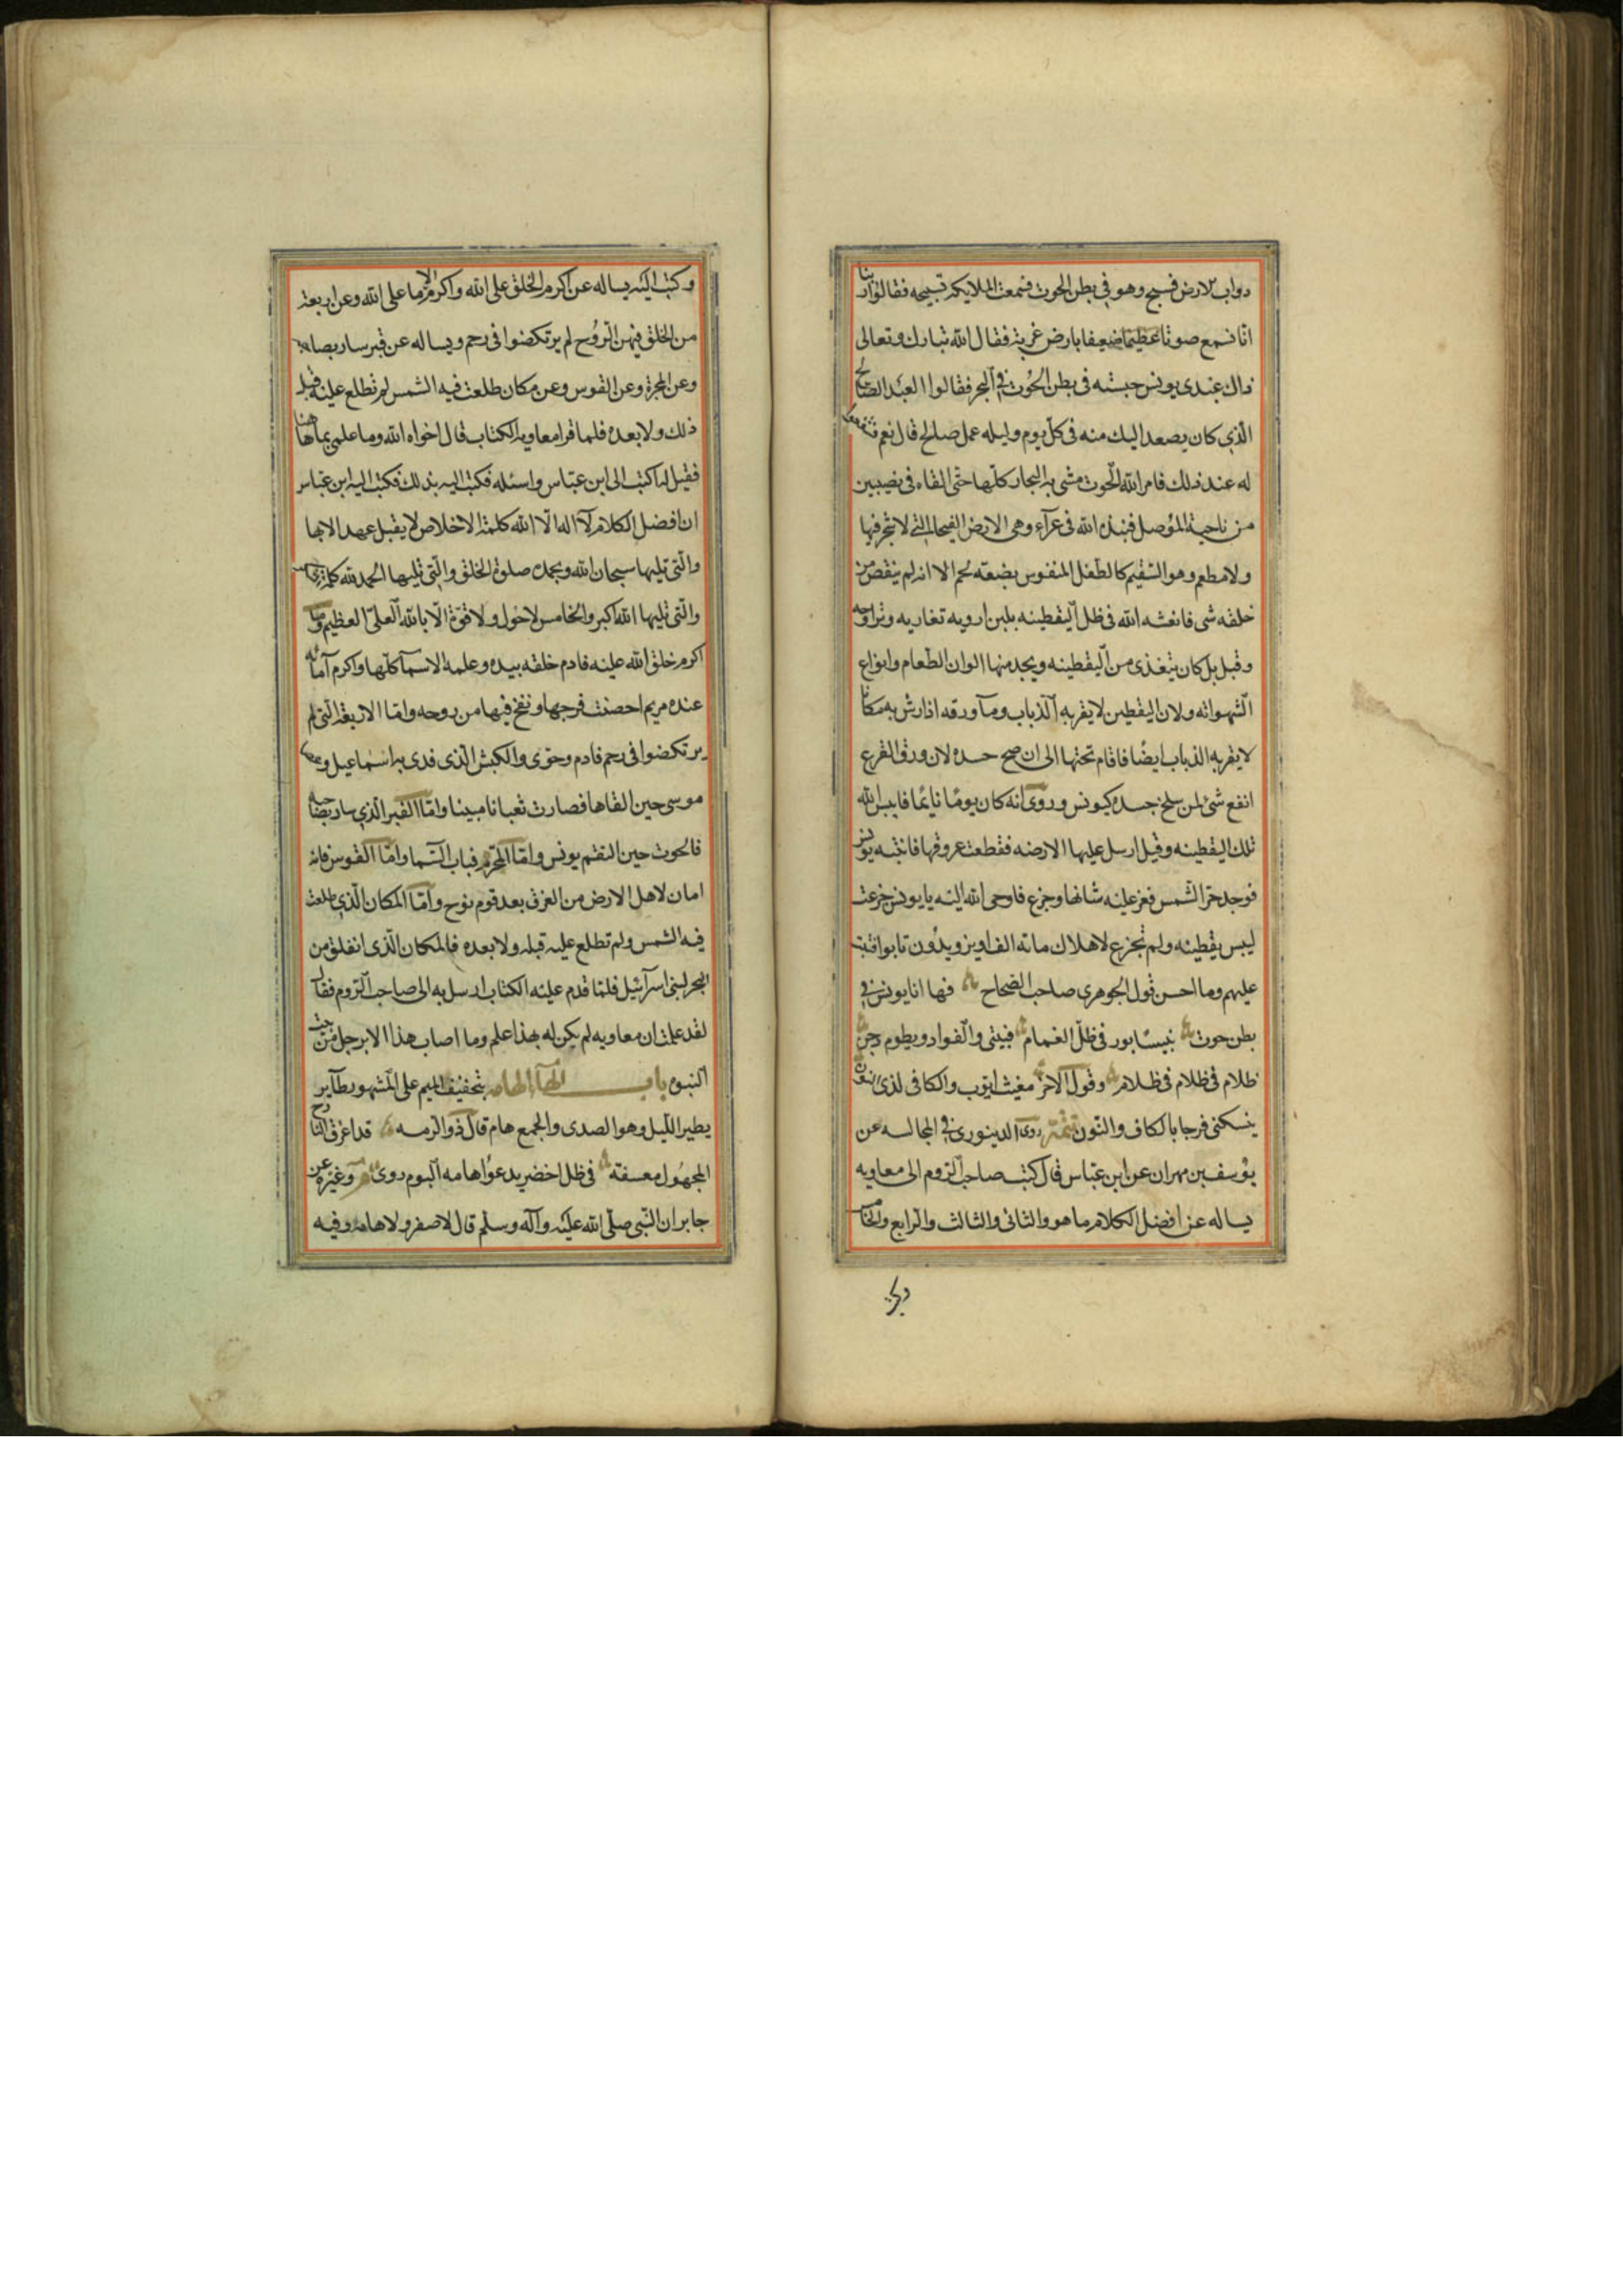 دواب الارض فسبح وهو في بطن الحوت فسمعت الملايكه تسبيحه فقالوا ربنا
انا نسمع صوتا عظيما ضعيفا بارض غربة فقال الله تبارك وتعالى
ذاك عبدي يونس حبسته في بطن الحوت في البحر فقالوا العبد الصالح
الذي كان يصعد اليك منه في كل يوم وليله عمل صالح قال نعم فشفعوا
له عند ذلك فامر الله الحوت مشى به البحار كلها حتى القاه في نصيبين
من ناحية الموصل فنبذه الله في عرآء وهى الارض الفيحا التي لا شجر فيها
ولا مطعم وهو السقيم كالطفل المنفوس بضعة لحم الا انه لم ينقص من
خلقه شى فانعشه الله في ظل اليقطينه بلبن ارويه تغاديه وتراوحه
وقيل بل كان يتغذى من اليقطينه ويجد منها الوان الطعام وانواع
الشهواته ولان اليقطين لا يقربه الذباب ومآ ورقه اذا رش به مكانا
لا يقربه الذباب ايضا فاقام تحتها الى ان صح جسده لان ورق القرع
انفع شئ لمن سلخ جسده كيونس وروى انه كان يوما نايما فايبس الله
تلك اليقطينه وقيل ارسل عليها الارضه فقطعت عروقها فانتبه يونس
فوجد حر الشمس فعز عليه شانها وجزع فاوحى الله اليه يا يونس جزعت
ليبس يقطينه ولم تجزع لاهلاك ماته الف او يزويدون تابوا فتبت
عليهم وما احسن قول الجوهرى صاحب الصحاح فها انا يونس في
بطن حوت بنيسابور في ظل الغمام فبيتى والفواد ويطوم دجن
ظلام في ظلام في ظلام وقول الاخر مغيث ايوب والكافى لذى النون
ينسكنى فرجا بالكاف والنون تتمة روى الدينورى في المجالسه عن
يوسف بن مهران عن ابن عباس قال كتب صاحب الروم الى معاويه
يساله عن افضل الكلام ما هو والثانى والثالث والرابع والخامس
وكتب اليه يساله عن اكرم الخلق على الله واكرم الاما على الله وعن اربعة
من الخلق فيهن الروح لم يرتكضوا في رحم ويساله عن قبر سار بصاحبه
وعن المجرة وعن القوس وعن مكان طلعت فيه الشمس لم تطلع عليه قبل
ذلك ولا بعده فلما قرا معاويه الكتاب قال اخزاه الله وما علمى بما هاهنا
فقيل له اكتب الى ابن عباس واسئله فكتب اليه بذلك فكتب اليه ابن عباس
ان افضل الكلام لآ اله الا الله كلمة الاخلاص لا يقبل عمل الا بها
والتي تليها سبحان الله وبحمده صلوة الخلق والتي تليها الحمد لله كلمة الشكر
والتي تليها الله اكبر والخامس لا حول ولا قوة الا بالله العلى العظيم واما
اكرم خلق الله عليه فادم خلقه بيده وعلمه الاسمآ كلها واكرم امائه
عنده مريم احصنت فرجها ونفخ فيها من روحه واما الاربعة التي لم
يرتكضوا في رحم فادم وحوى والكبش الذى فدى به اسماعيل وعصا
موسى حين القاها فصارت ثعبانا مبينا واما القبر الذي سار بصاحبه
فالحوت حين التقم يونس واما المجرة فباب السما واما القوس فانه
امان لاهل الارض من الغرق بعد قوم نوح واما المكان الذي طلعت
فيه الشمس ولم تطلع عليه قبله ولا بعده فالمكان الذى انفلق من
البحر لبنى اسرآئيل فلما قدم عليه الكتاب ارسل به الى صاحب الروم فقال
لقد علمت ان معاويه لم يكن له بهذا علم وما اصاب هذا الا رجل من بيت
النبوه باب الهآ الهامه بتخفيف الميم على المشهور طآير
يطير الليل وهو الصدى والجمع هام قال ذو الرمه قد اعرف النازح
المجهول معسفه في ظل اخضر يدعوا هامه البوم روى م وغيره عن
جابر ان النبى صلى الله عليه وآله وسلم قال لا صفر ولا هامه وفيه
وكتب